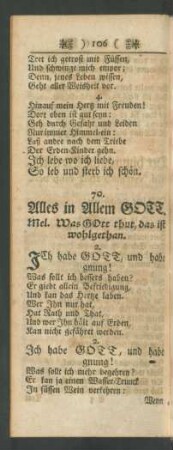 ) 106 (
Tret ich getrost mit Füssen,
Und schwinge mich empor;
Denn, jenes Leben wissen,
Geht aller Weisheit vor.
4.
Hinauf mein Hertz mit Freuden!
Dort oben ist gut seyn:
Geh durch Gefahr und Leiden
Nur immer Himmel-ein:
Laß andre nach dem Triebe
Der Erden-Kinder gehn.
Ich lebe wo ich liebe,
So leb und sterb ich schön.
70.
Alles in Allem GOTT.
Mel. Was GOtt thut, das ist
wohlgethan.
ICh habe GOTT, und habe
gnung!
Was solt ich bessers haben?
Er giebt allein Befriedigung,
Und kan das Hertze laben.
Wer Ihn nur hat,
Hat Rath und That,
Und wer Ihn hält auf Erden,
Kan nicht gefähret werden.
2.
Ich habe GOTT, und habe
gnung!
Was solt ich mehr begehren?
Er kan ja einen Wasser-Trunck
In süssen Wein verkehren:
Wenn